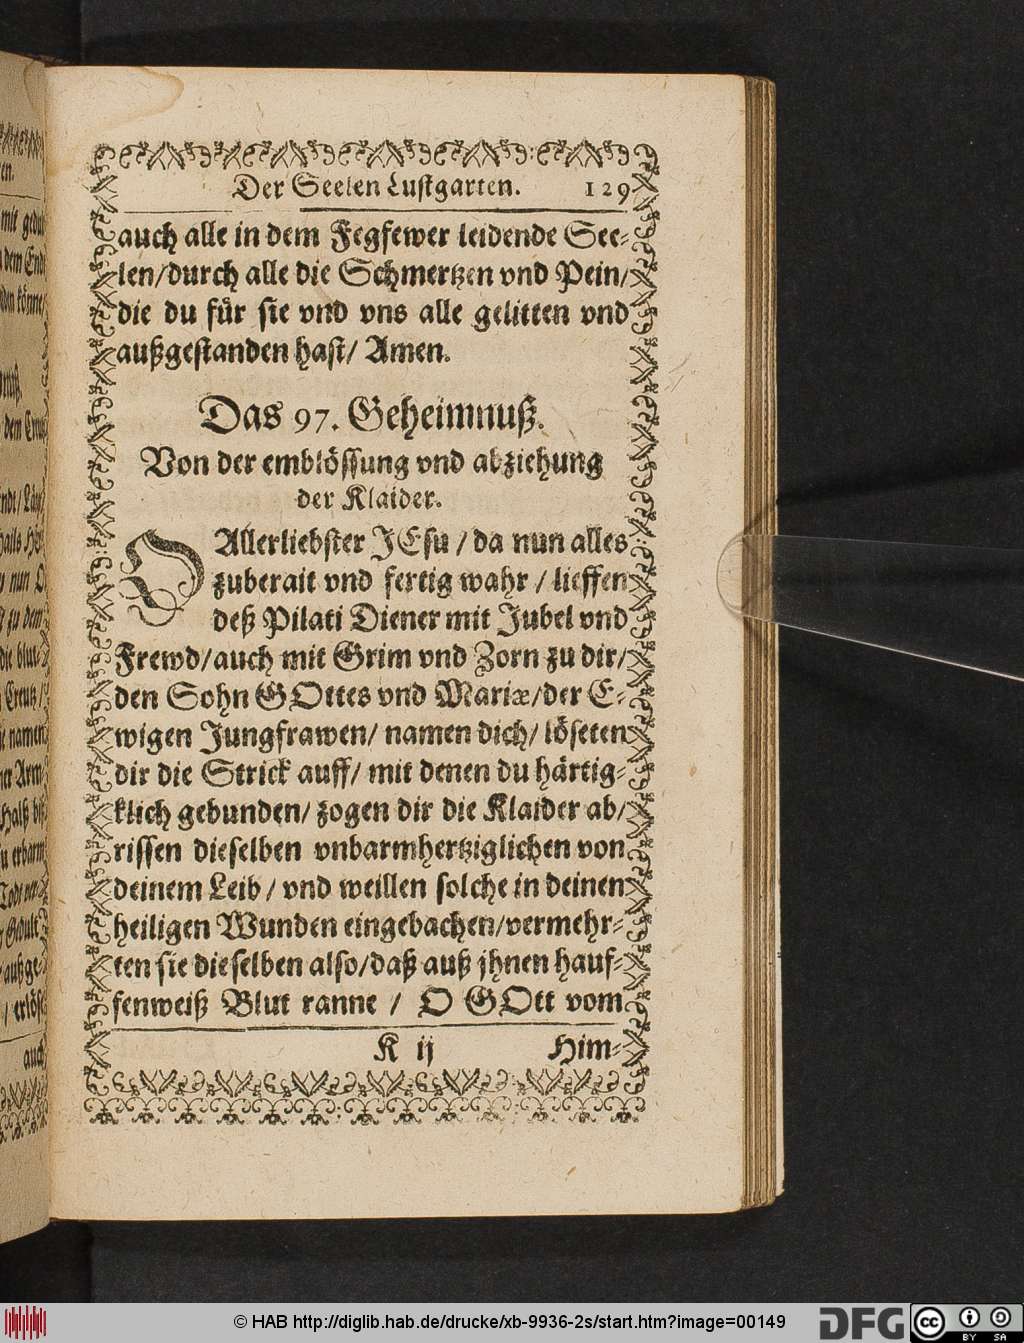 Der Seelen Lustgarten. 129
auch alle in dem Fegfewer leidende See-
len/durch alle die Schmertzen vnd Pein/
die du für sie vnd vns alle gelitten vnd
außgestanden hast/ Amen.
Das 97. Geheimnuß.
Von der emblössung vnd abziehung
der Klaider.
O Allerliebster JEsu / da nun alles
zuberait vnd fertig wahr / lieffen
deß Pilati Diener mit Jubel vnd
Frewd/auch mit Grim vnd Zorn zu dir/
den Sohn GOttes vnd Mariæ/der E-
wigen Jungfrawen/ namen dich/ löseten
dir die Strick auff/ mit denen du härtig-
klich gebunden/ zogen dir die Klaider ab/
rissen dieselben vnbarmhertziglichen von
deinem Leib / vnd weillen solche in deinen
heiligen Wunden eingebachen/vermehr-
ten sie dieselben also/daß auß jhnen hauf-
fenweiß Blut ranne / O GOtt vom
K ij Him-
auch
© HAB http://diglib.hab.de/drucke/xb-9936-2s/start.htm?image=00149
DFG
cc BY SA